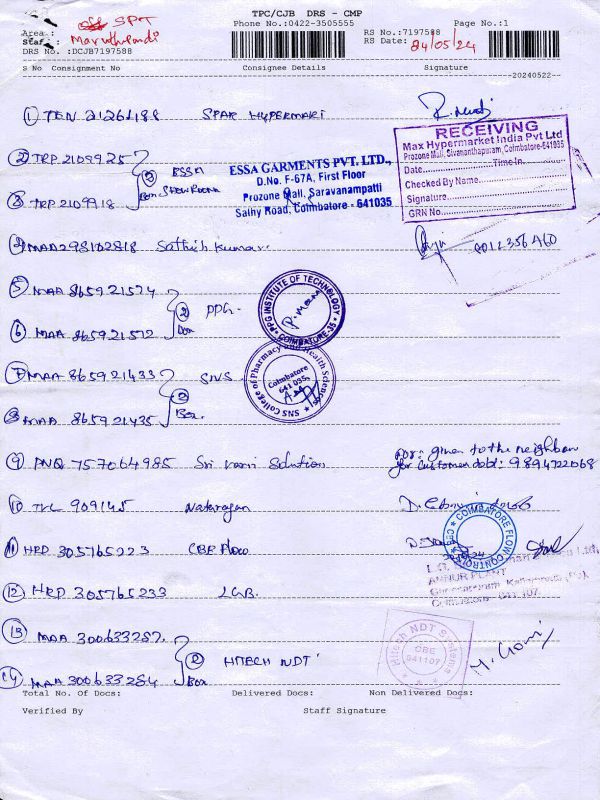 TPC/CJB DRS - CMP
Phone No.:0422-3505555 Page No.:1
Area : SPT RS No.:7197588
Staff : Maruthupandi RS Date: 24/05/24
DRS No. :DCJB7197588
S No Consignment No Consignee Details Signature
20240522
1 TEN 21261188 SPAR HYPERMART
RECEIVING
Max Hypermarket India Pvt Ltd
Prozone Mall, Sivananthapuram, Coimbatore-641035
Date Time In
Checked By Name
Signature
GRN No
2 TRP 2109925 ESSA
Box SHOWROOM
3 TRP 2109918
ESSA GARMENTS PVT. LTD.,
D.No. F-67A, First Floor
Prozone Mall, Saravanampatti
Sathy Road, Coimbatore - 641035
4 MAA298102818 Sathish Kumar
5 MAA 865921524
2 Box PPG.
6 MAA 865921512
PPG INSTITUTE OF TECHNOLOGY
COIMBATORE-35
7 MAA 865921433
2 Box. SNS
8 MAA 865921435
SNS College of Pharmacy and Health Sciences
Coimbatore
641 035
9 PNQ 757064985 Sri Solution given to the neighbour
for customer 9894722068
10 TVL 909145 Natarajan
11 HRP 305765223 CBE Flow
COIMBATORE FLOW CONTROL
ANNUR PLANT
12 HRP 305765233 LGB.
13 MAA 300633287.
2 Box HITECH NDT
14 MAA 300633284
Hitech NDT Systems
CBE
641107
Total No. Of Docs: Delivered Docs: Non Delivered Docs:
Verified By Staff Signature